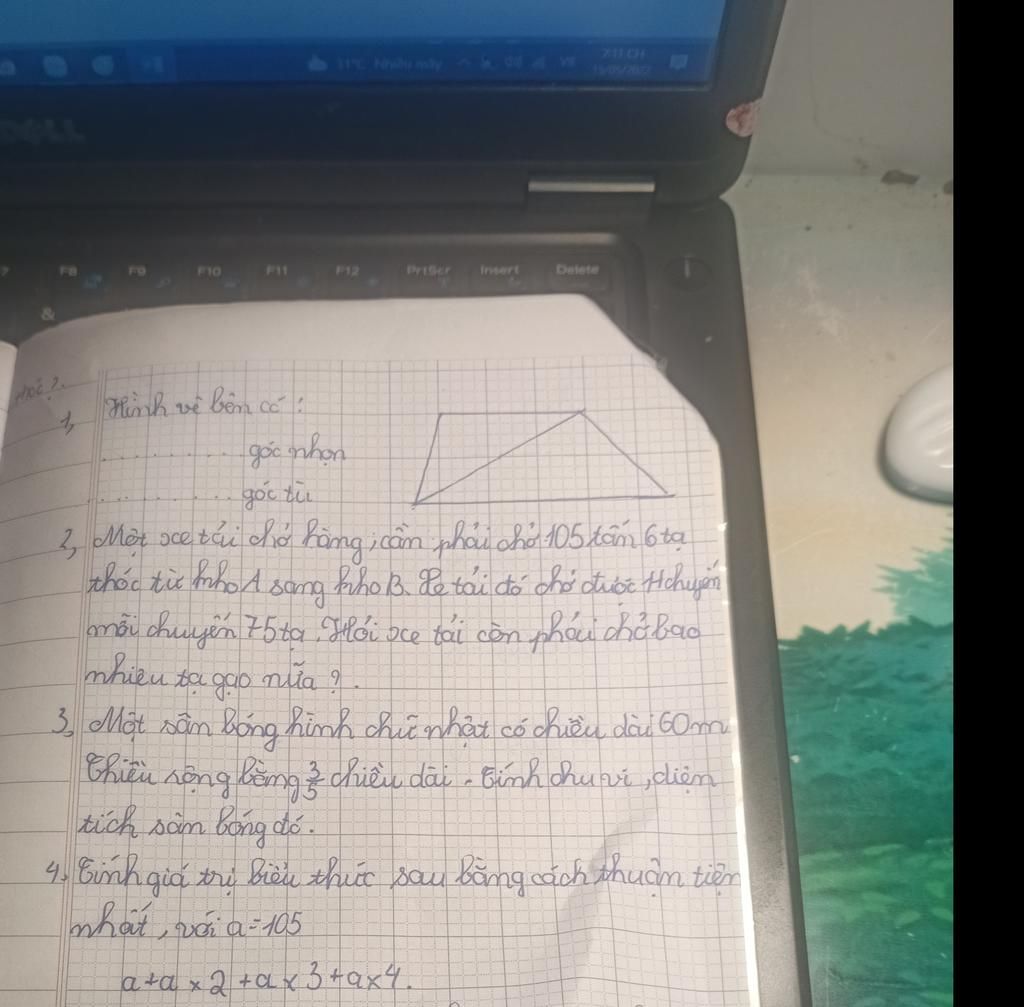 31°C Nhiều mây
VS
7:11 CH
15/05/2022
DELL
F8 F9 F10 F11 F12 PrtScr Insert Delete
&
1, Hình vẽ bên có:
............ góc nhọn
............ góc tù
2, Một xe tải chở hàng, cần phải chở 105 tấn 6 tạ
thóc từ kho A sang kho B. Xe tải đó chở được 11 chuyến
mỗi chuyến 75 tạ. Hỏi xe tải còn phải chở bao
nhiêu tạ gạo nữa?.
3, Một sân bóng hình chữ nhật có chiều dài 60m
Chiều rộng bằng 3/5 chiều dài. Tính chu vi, diện
tích sân bóng đó.
4, Tính giá trị biểu thức sau bằng cách thuận tiện
nhất, với a=105
a+a×2+a×3+a×4.